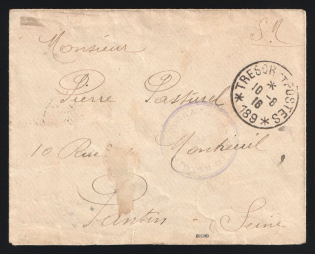 S.M
Monsieur
Pierre Pasturel
TRESOR ET POSTES
*
10-8
16
* 189 *
10 Rue de Montreuil
Pantin - Seine